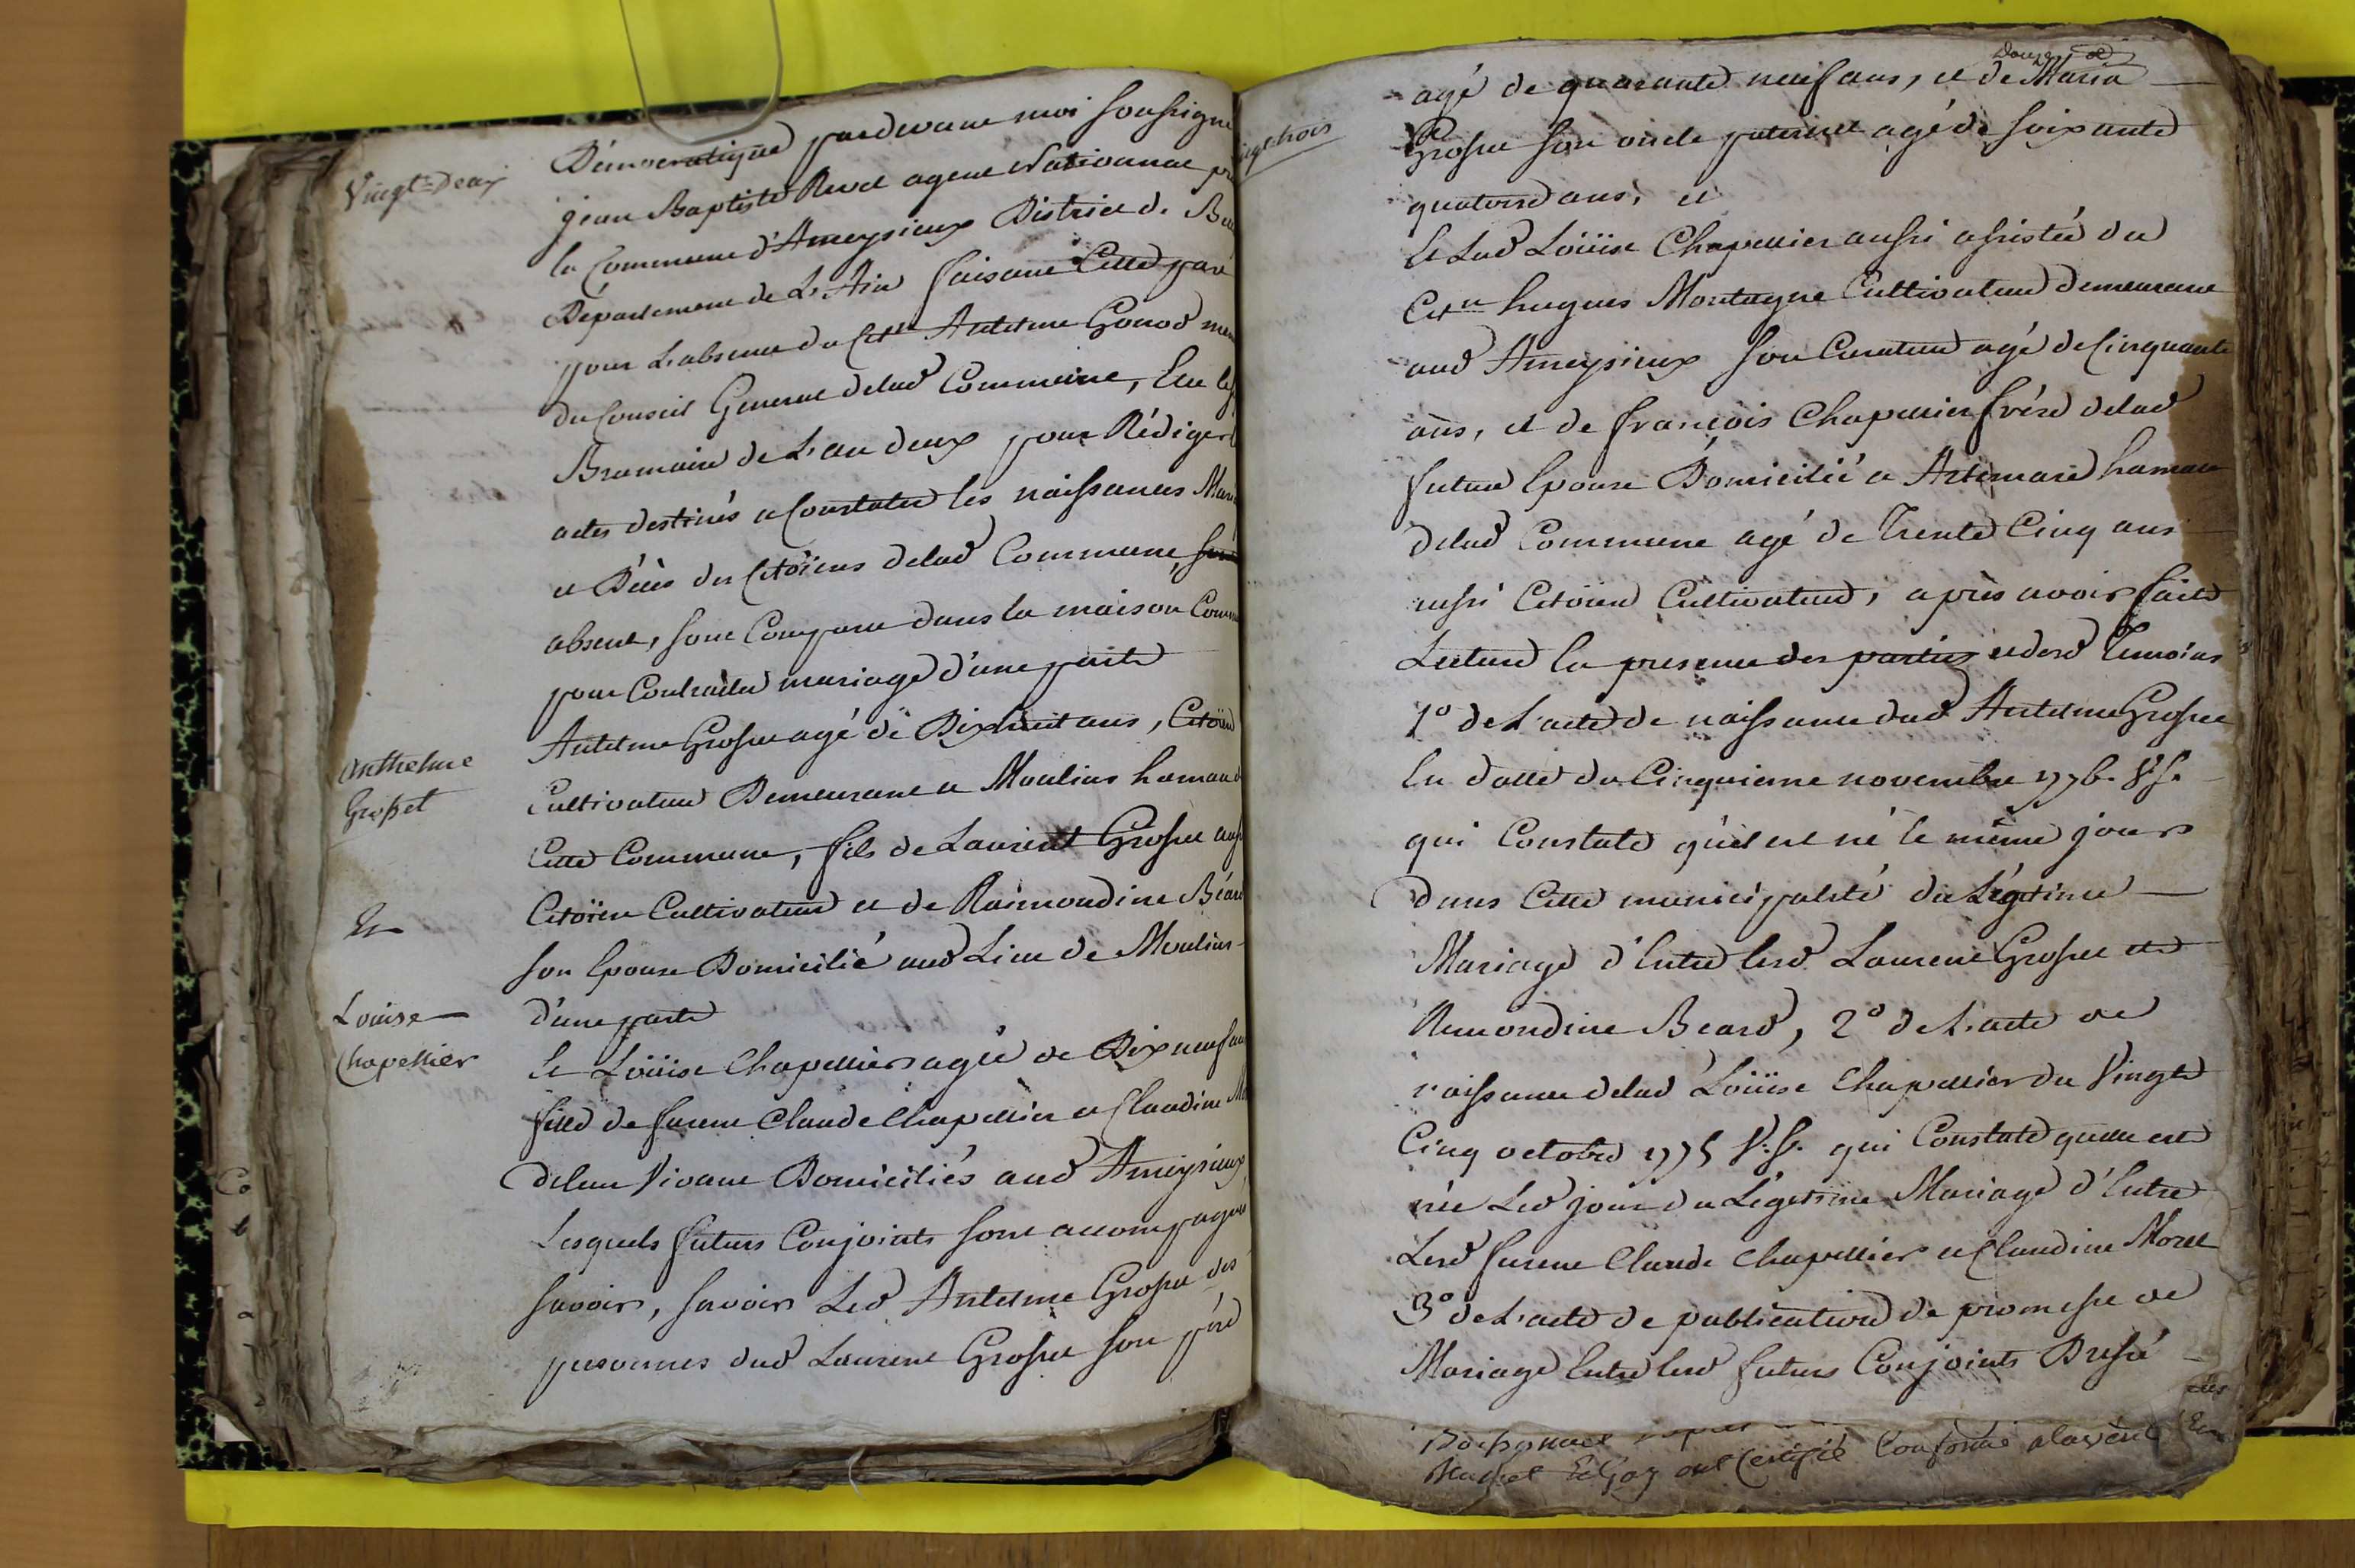 Vingt-Deux
Démocratique pardevant moi soussigné
jean Baptiste Revel agent National
la Commune d'Ameysieux District de
Département de L'Ain faisant Cette part
pour L'absence du Citn Antelme Gonod
du Conseil General delad Commune, Elu
Brumaire de L'an deux pour Rédiger
actes destinés a Constater les naissances
et Décès des Citöiens delad Commune,
absent, sont Comparu dans la maison
pour Contracter mariage d'une parte
Anthelme
Grosset
Et
Louise
Chapellier
Antelme Grosset agé de Dixhuit ans, Citöien
Cultivateur Demeurant a Moulins hameau
Cette Commune, fils de Laurent Grosset
Citöien Cultivateur et de Raimondine Béard
son Epouse Domicilié aud Lieu de Moulins
d'une parte
Et Loüise Chapellier agée de Dix neuf ans
fille de furent Claude Chapellier et Claudine
deleur Vivant Domiciliés aud Ameysieux
Lesquels futurs Conjoints sont accompagnés
savoir, savoir Led Antelme Grosset des
personnes dud Laurent Grosset son père
Douze
agé de quarante neuf ans, et de Maria
Grosset son oncle paternel agé de soixante
quatorse ans, et
Et Lad Loüise Chapellier aussi assistée du
Citn hugues Montagne Cultivateur Demeurant
aud Ameysieux son Curateur agé de Cinquante
ans, et de françois Chapellier frère delad
future Epouse Domicilié a Artemare hameau
delad Commune agé de Trente Cinq ans
aussi Citöien Cultivateur, après avoir fait
Lecture En presence des parties et desd Temoins
1° de L'acte de naissance dud Antelme Grosset
En datte du Cinquieme novembre 1776. V.S.
qui Constate qu'il est né le même jour
dans Cette municipalité du Légitime
Mariage d'Entre lesd Laurent Grosset et
Remondine Beard, 2° de L'acte de
naissance delad Loüise Chapellier du Vingt
Cinq octobre 1775 V.S. qui Constate quelle est
née Led jour du Légitime Mariage d'Entre
Lesd furent Claude Chapellier et Claudine Morel
3° de L'acte de publication de promesse de
Mariage Entre lesd futurs Conjoints Dressé
ont Certifié Conforme